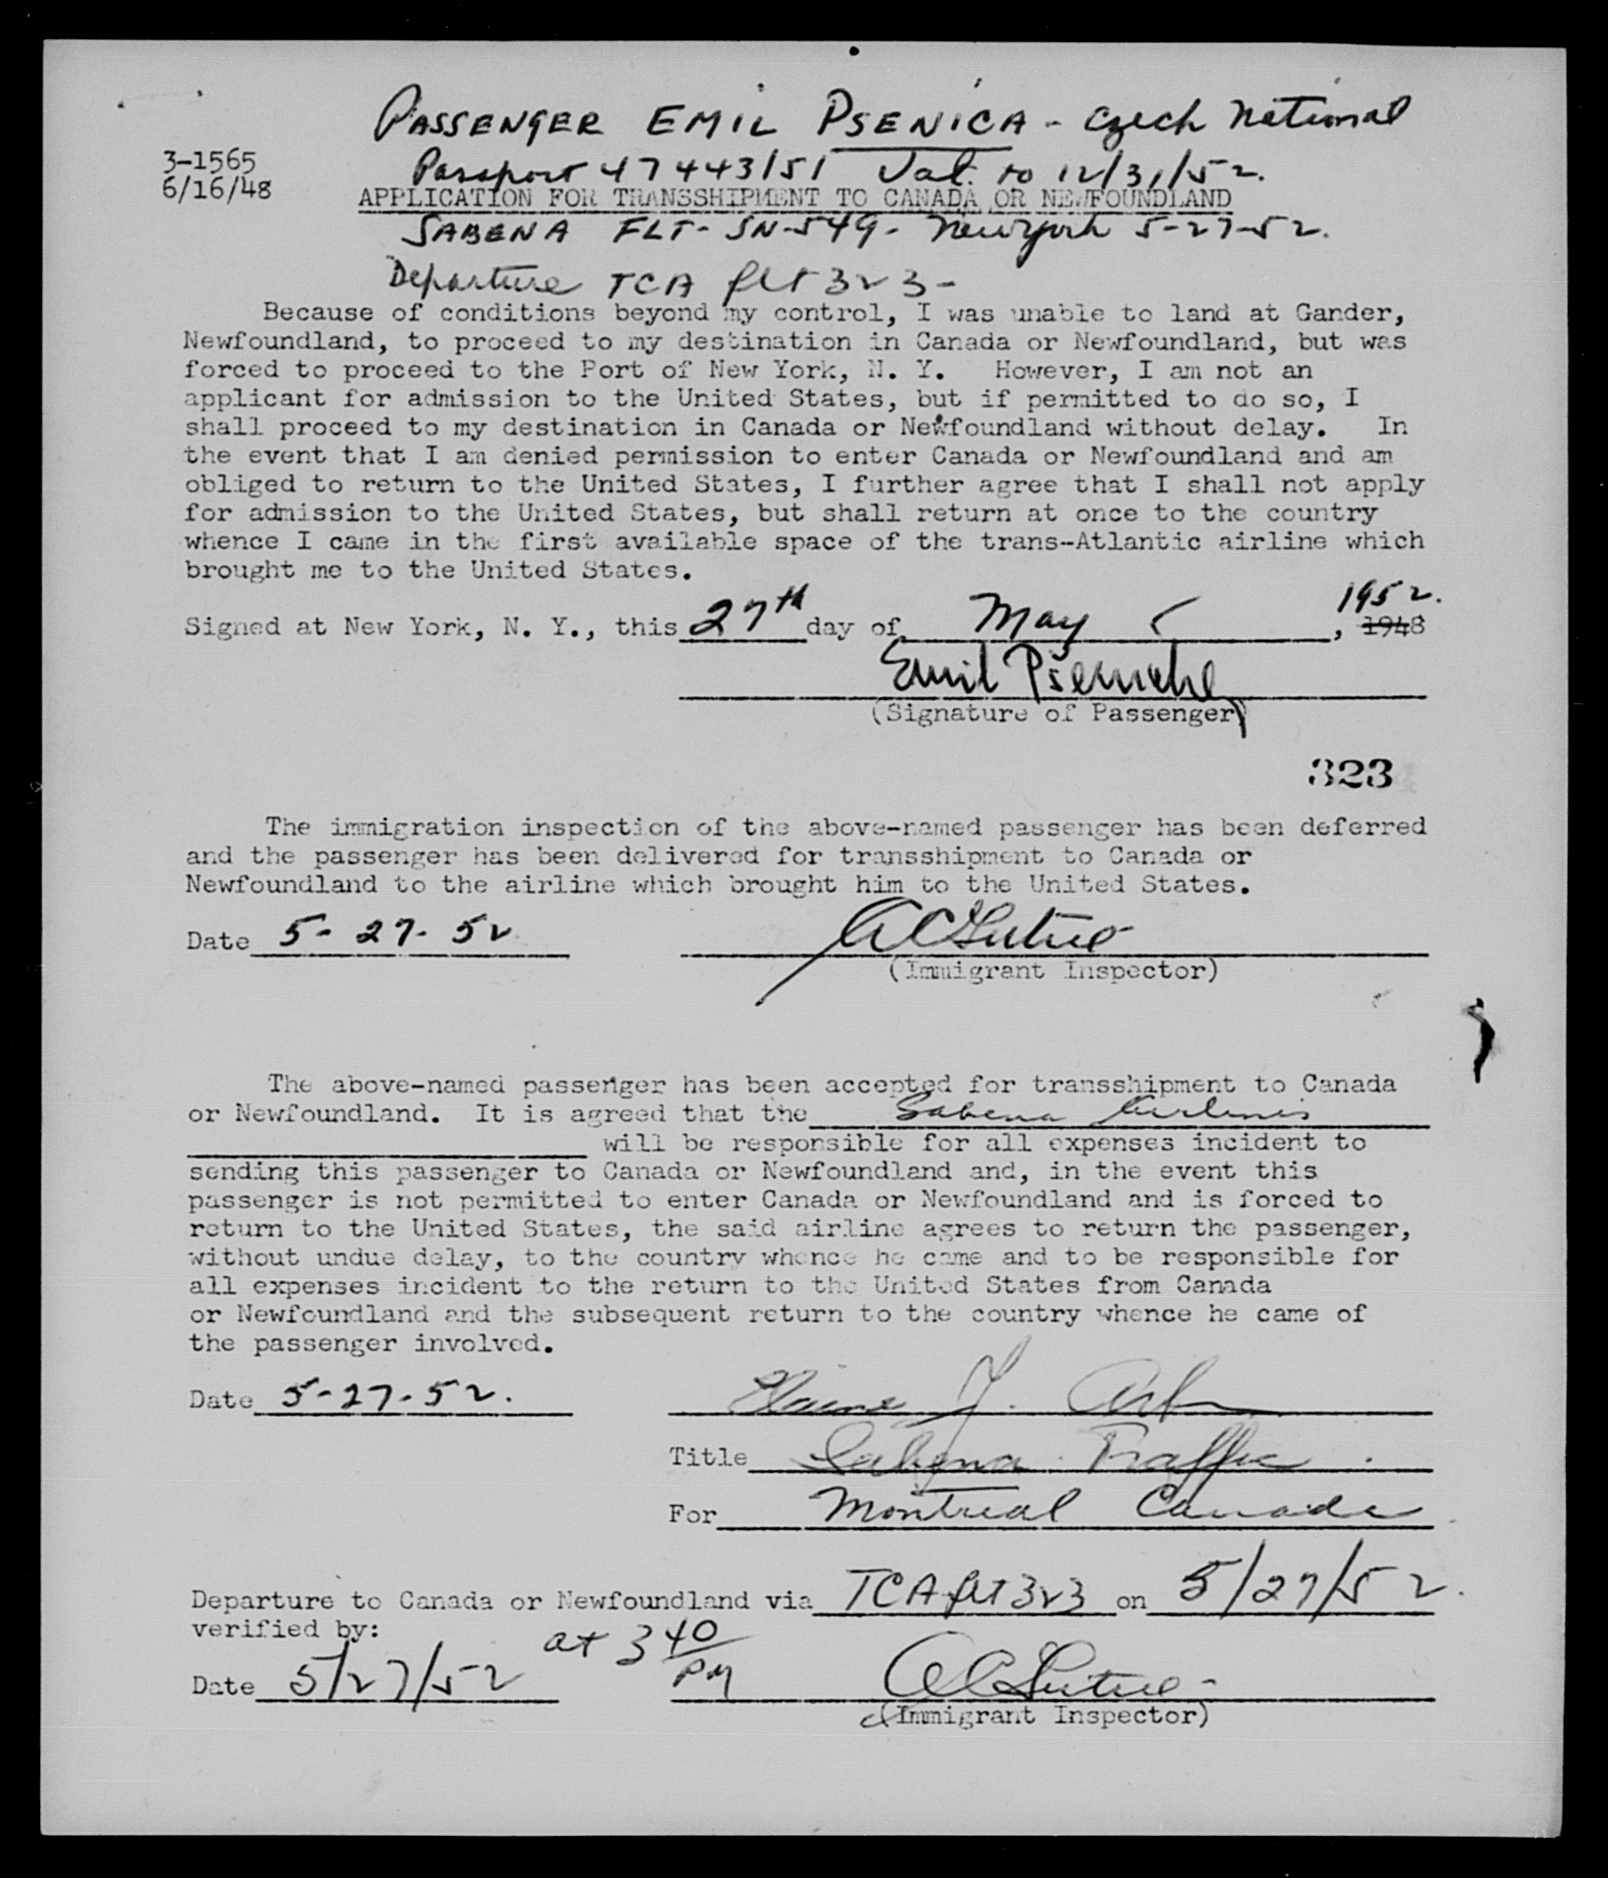 PASSENGER EMIL PSENICA - Czech National
3-1565
Passport 47443/51 Val. to 12/31/52.
6/16/48
APPLICATION FOR TRANSSHIPMENT TO CANADA OR NEWFOUNDLAND
SABENA FLT- SN-549- New York 5-27-52.
Departure TCA flt 323-
Because of conditions beyond my control, I was unable to land at Gander,
Newfoundland, to proceed to my destination in Canada or Newfoundland, but was
forced to proceed to the Port of New York, N. Y. However, I am not an
applicant for admission to the United States, but if permitted to do so, I
shall proceed to my destination in Canada or Newfoundland without delay. In
the event that I am denied permission to enter Canada or Newfoundland and am
obliged to return to the United States, I further agree that I shall not apply
for admission to the United States, but shall return at once to the country
whence I came in the first available space of the trans-Atlantic airline which
brought me to the United States.
1952.
Signed at New York, N. Y., this 27th day of May, 1948
Emil
(Signature of Passenger)
323
The immigration inspection of the above-named passenger has been deferred
and the passenger has been delivered for transshipment to Canada or
Newfoundland to the airline which brought him to the United States.
Date 5-27-52
(Immigrant Inspector)
The above-named passenger has been accepted for transshipment to Canada
or Newfoundland. It is agreed that the Sabena Airlines
will be responsible for all expenses incident to
sending this passenger to Canada or Newfoundland and, in the event this
passenger is not permitted to enter Canada or Newfoundland and is forced to
return to the United States, the said airline agrees to return the passenger,
without undue delay, to the country whence he came and to be responsible for
all expenses incident to the return to the United States from Canada
or Newfoundland and the subsequent return to the country whence he came of
the passenger involved.
Date 5-27-52.
Title Sabena Traffic
For Montreal Canada
Departure to Canada or Newfoundland via TCA flt 323 on 5/27/52.
verified by:
at 3 40 PM
Date 5/27/52
(Immigrant Inspector)